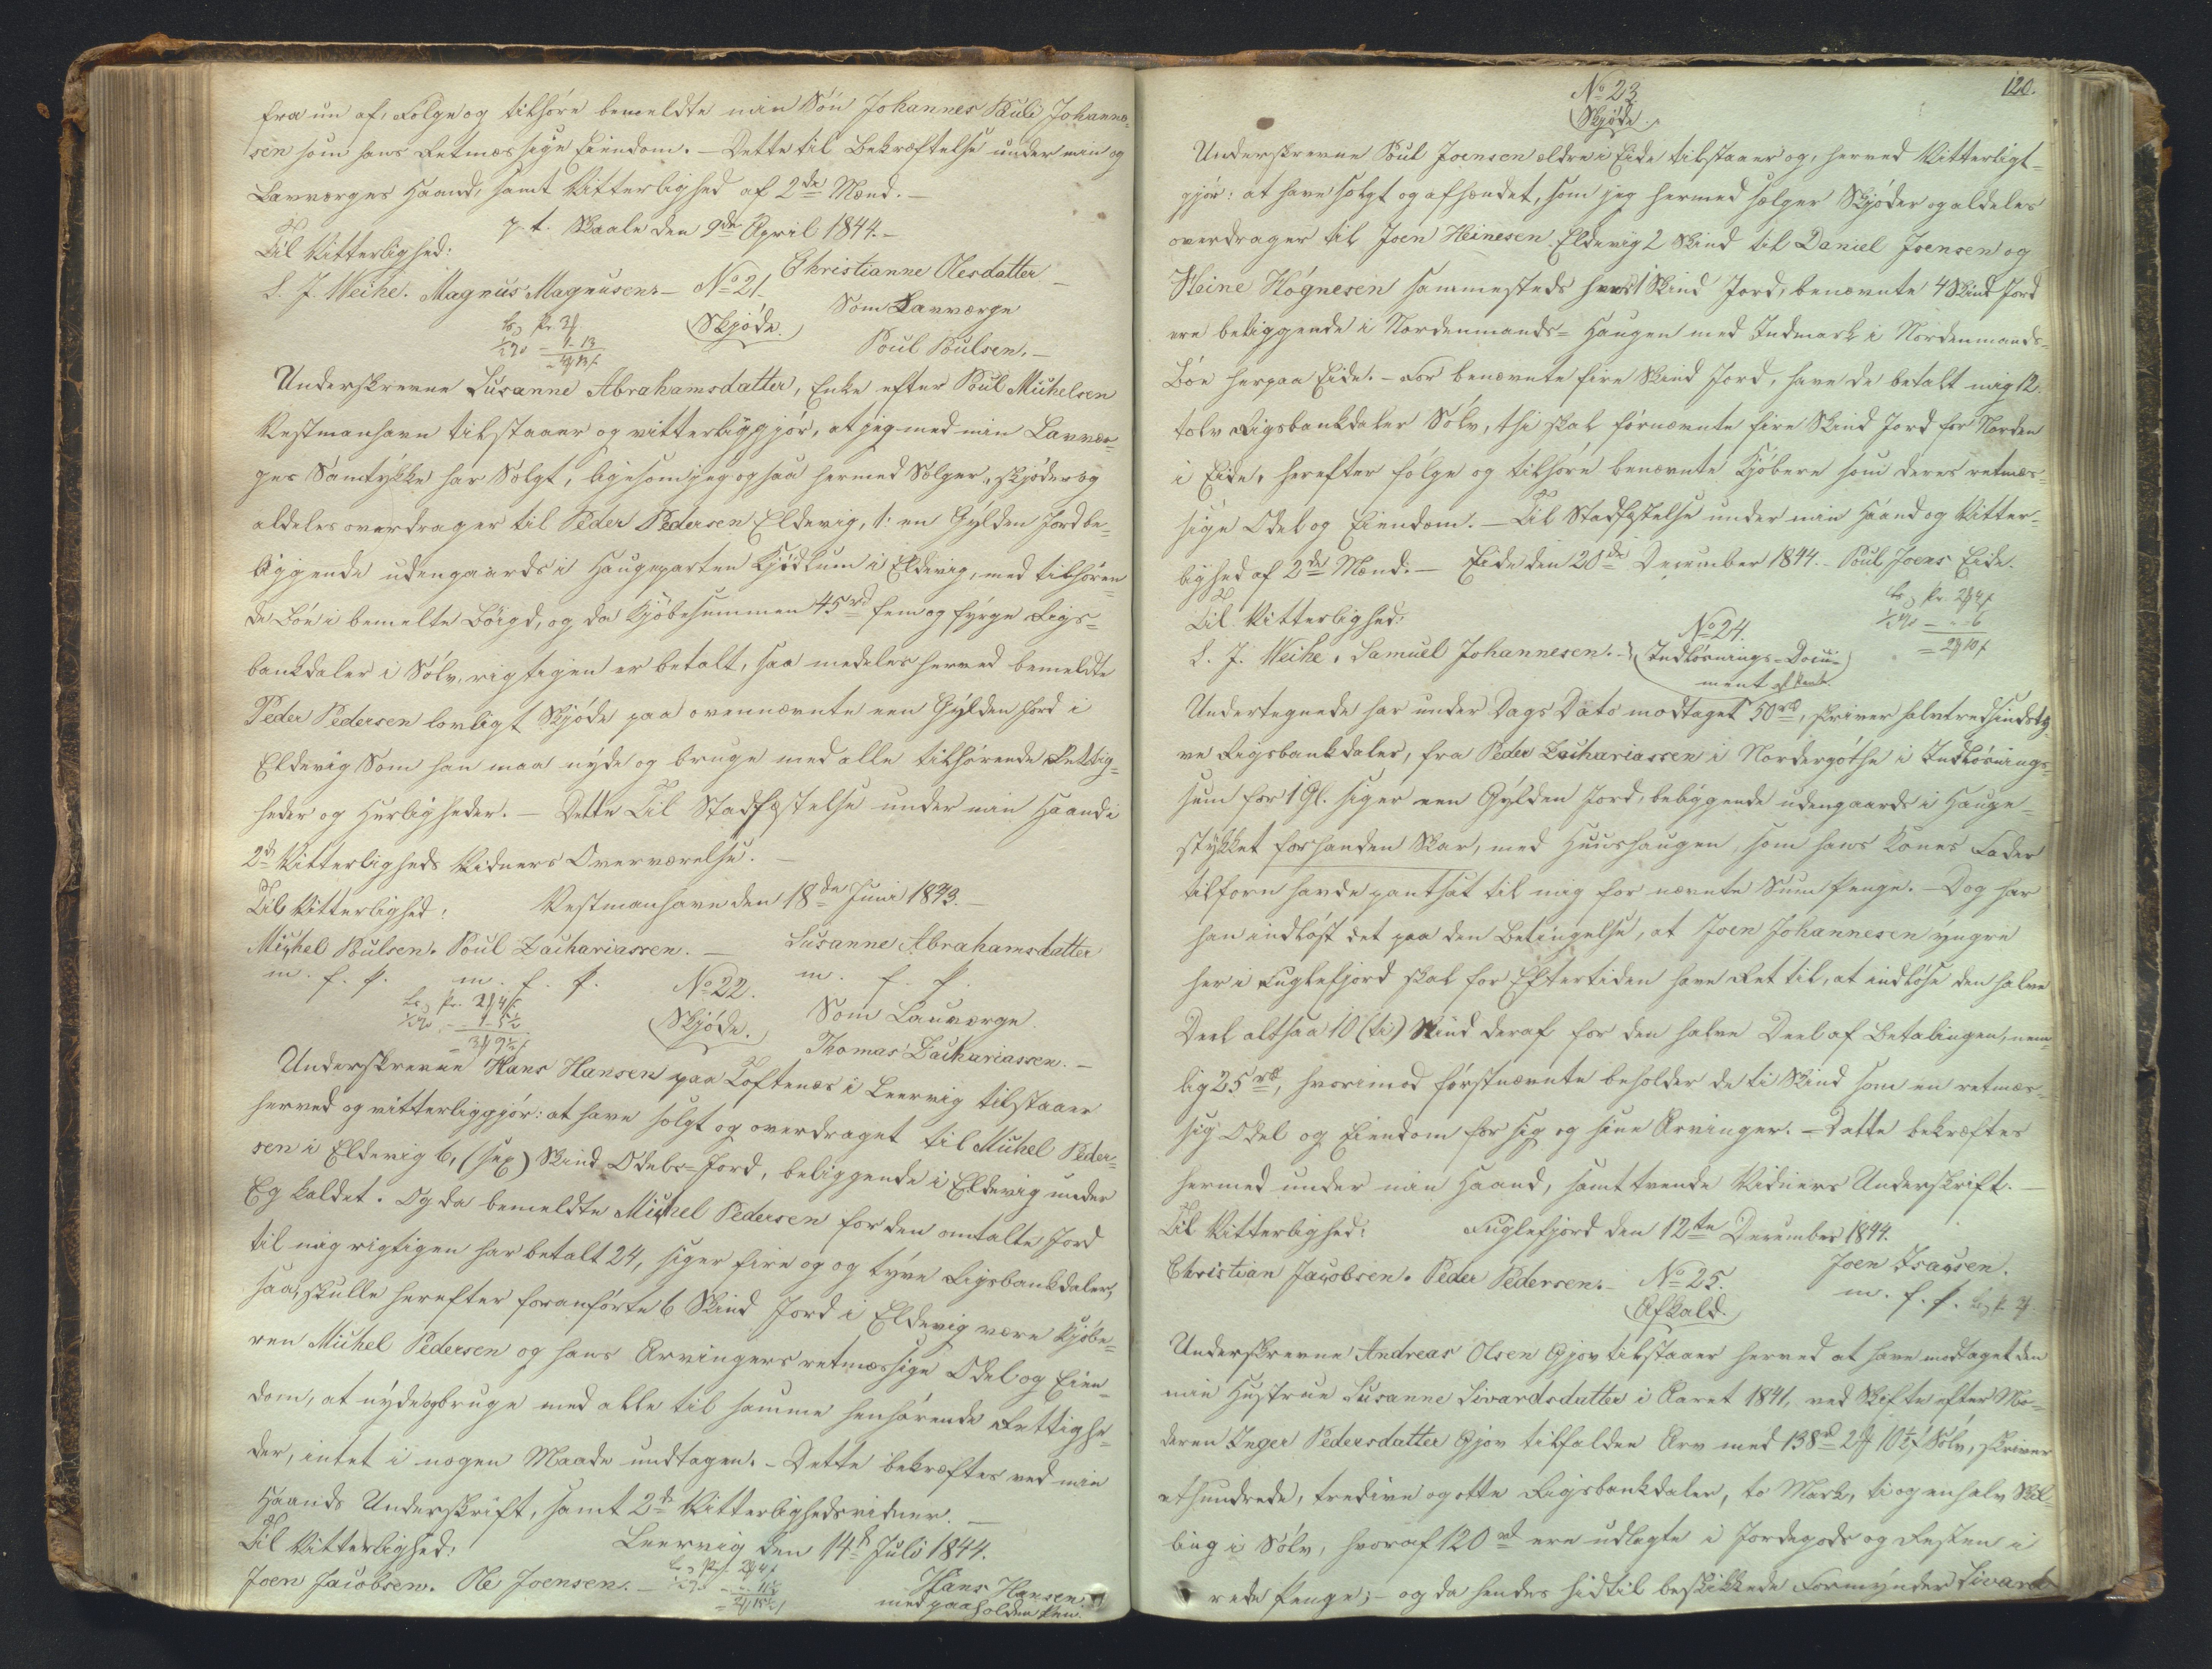 fra nu af, følge og tilhøre bemeldte min Søn Johannes Pauli Johanne-
sen som hans retmæssige Eiendom. — Dette til Bekræftelse under min og
Lavværges Haand, samt Vitterlighed af 2de Mænd. —
p. t. Skaale den 9de April 1844. —
Til Vitterlighed:
Christianne Olesdatter
L. J. Weihe. Magnus Magnusen. —
Som Lavværge
Poul Poulsen. —
No 21.
Skjøde.
Underskrevne Susanne Abrahamsdatter, Enke efter Poul Michelsen
Vestmanhavn tilstaaer og vitterliggjør, at jeg med min Lavvær-
ges Samtykke har Solgt, ligesom jeg ogsaa hermed Sælger, skjøder og
aldeles overdrager til Peder Pedersen Eldevig, 1: en Gylden Jord be-
liggende udengaards i Haugeparten Kjødlum i Eldevig, med tilhøren-
de Bøe i bemelte Bøigd, og da Kjøbesummen 45rd fem og fyrge Rigs-
bankdaler i Sølv, rigtigen er betalt, saa medeles herved bemeldte
Peder Pedersen lovligt Skjøde paa ovennævnte een Gylden Jord i
Eldevig Som han maa nyde og bruge med alle tilhørende Rettig-
heder og Herligheder. — Dette Til Stadfæstelse under min Haand i
2de Vitterligheds Vidners Overværelse. —
Til Vitterlighed: Vestmanhavn den 18de Juni 1843. —
Michel Poulsen. Poul Zachariassen. — Susanne Abrahamsdatter
m. f. P. m. f. P. m. f. P.
No 22.
Skjøde.
Som Lauværge
Thomas Zachariassen. —
Underskrevne Hans Hansen paa Toftenæs i Leervig tilstaaer
herved og vitterliggjør: at have solgt og overdraget til Michel Peder-
sen i Eldevig 6, (sex) Skind Odels-Jord, beliggende i Eldevig under
Eg kaldet. Og da bemeldte Michel Pedersen for den omtalte Jord
til mig rigtigen har betalt 24, siger fire og og tyve Rigsbankdaler,
saa, skulle herefter foranførte 6 Skind Jord i Eldevig være Kjøbe-
ren Michel Pedersen og hans Arvingers retmæssige Odel og Eien-
dom, at nyde og bruge med alle til samme henhørende Rettighe-
der, intet i nogen Maade undtagen. — Dette bekræftes ved min
Haands Underskrift, samt 2de Vitterlighedsvidner. —
Til Vitterlighed: Leervig den 14de Juli 1844.
Joen Jacobsen. Ole Joensen. — Hans Hansen
med paaholden Pen.
120.
No 23.
Skjøde.
Underskrevne Poul Joensen ældre i Eide tilstaaer og, herved Vitterligt-
gjør: at have solgt og afhændet, som jeg hermed sælger Skjøder og aldeles
overdrager til Joen Heinesen Eldevig 2 Skind til Daniel Joensen og
Heine Høgnesen sammesteds hver 1 Skind Jord, benævnte 4 Skind Jord
ere beliggende i Nordenmands-Haugen med Indmark i Nordenmands-
Bøe herpaa Eide. — For benævnte fire Skind Jord, have de betalt mig 12
tolv Rigsbankdaler Sølv, thi skal førnævnte fire Skind Jord for Norden
i Eide, herefter følge og tilhøre benævnte Kjøbere som deres retmæs-
sige Odel og Eiendom. — Til Stadfæstelse under min Haand og Vitter-
lighed af 2de Mænd. — Eide den 20de December 1844. Poul Joens Eide.
Til Vitterlighed:
L. J. Weihe, Samuel Johannesen. —
No 24.
Indløsnings-Docu-
ment af Pant.
Undertegnede har under Dags Dato modtaget 50rd, skriver halvtredsindsty-
ve Rigsbankdaler, fra Peder Zachariassen i Nordergøthe i Indløsnings-
sum for 1 Gl. siger een Gylden Jord, beliggende udengaards i Hauge-
stykket forhanden Skar, med Huushaugen, som hans Kones Fader
tilforn havde pantsat til mig for nævnte Sum Penge. — Dog har
han indløst det paa den Betingelse, at Joen Johannesen yngre
her i Fuglefjord skal for Eftertiden have Ret til, at indløse den halve
Deel altsaa 10 (ti) Skind deraf for den halve Deel af Betalingen, nem-
lig 25rd, hvorimod førstnævnte beholder de ti Skind som en retmæs-
sig Odel og Eiendom for sig og sine Arvinger. — Dette bekræftes
hermed under min Haand, samt tvende Vidners Underskrift. —
Til Vitterlighed: Fuglefjord den 12te December 1844.
Christian Jacobsen. Peder Pedersen. — Joen Isacsen.
m. f. P.
No 25.
Afkald.
Underskrevne Andreas Olsen Gjov tilstaaer herved at have modtaget den
min Hustrue Susanne Sivardsdatter i Aaret 1841, ved Skifte efter Mo-
deren Inger Pedersdatter Gjov tilfalden Arv med 138rd 2 10½ Sølv, skriver
ethundrede, tredive og otte Rigsbankdaler, to Mark, ti og en halv Skil-
ling i Sølv, hvoraf 120rd ere udlagte i Jordegods og Resten i
rede Penge; — og da hendes hidtil beskikkede Formynder Sivard